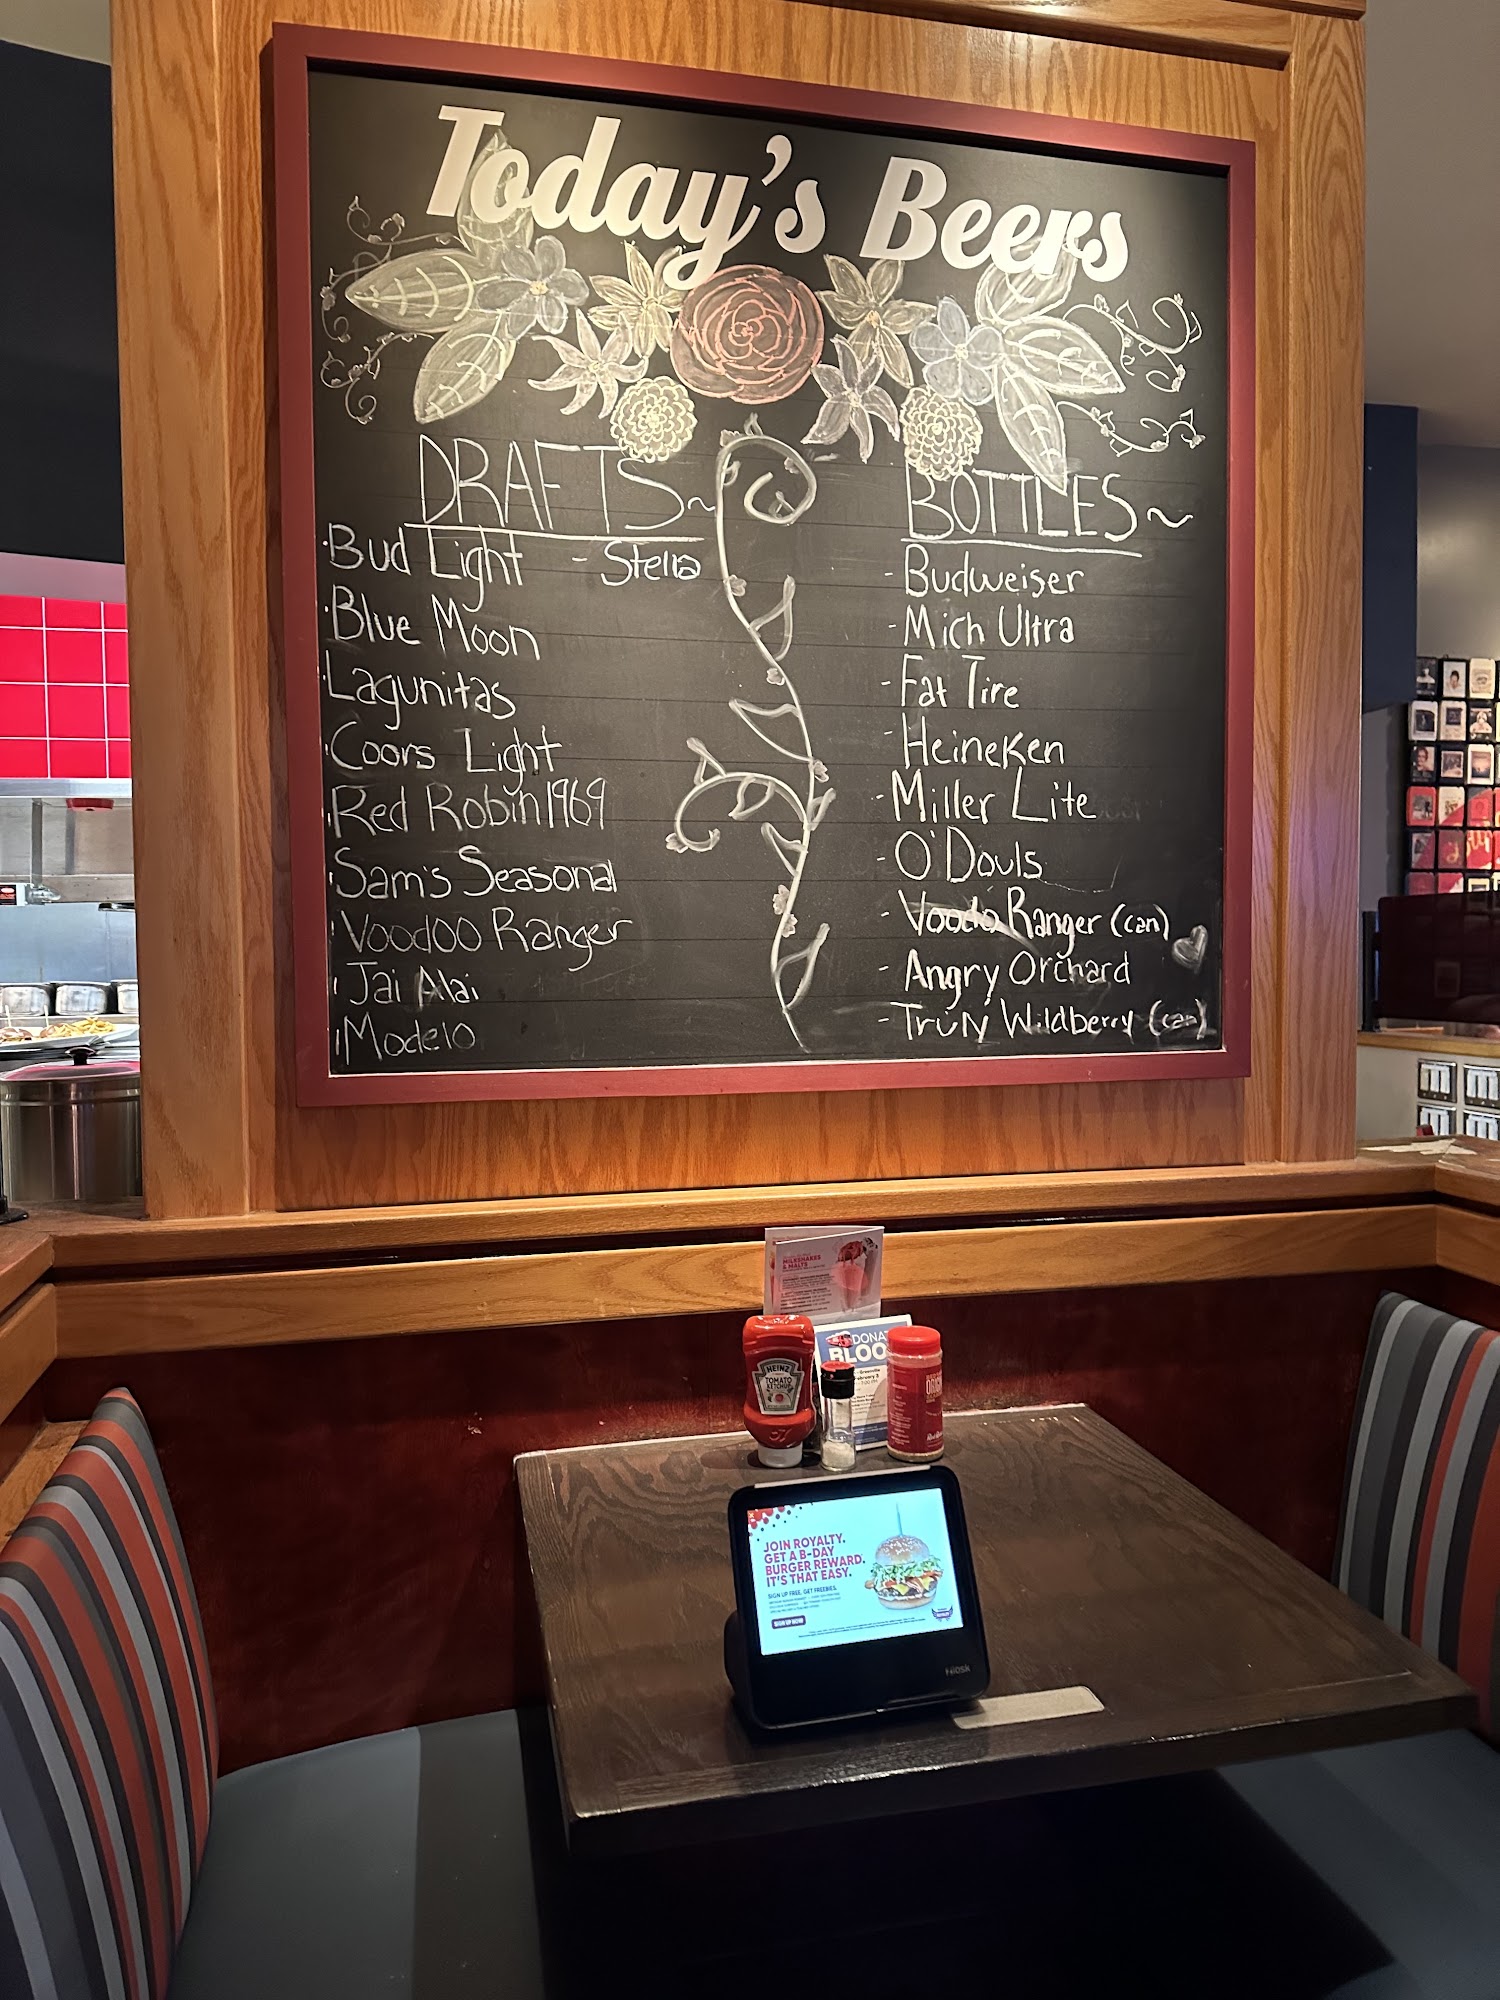 Today's Beers
DRAFTS~
Bud Light - Stella
Blue Moon
Lagunitas
Coors Light
Red Robin 1969
Sam's Seasonal
Voodoo Ranger
Jai Alai
Modelo
BOTTLES~
- Budweiser
- Mich Ultra
- Fat Tire
- Heineken
- Miller Lite
- O'Douls
- Voodo Ranger (can)
- Angry Orchard
- Truly Wildberry (can)
MILKSHAKES
& MALTS
HEINZ
TOMATO
KETCHUP
57
DONAT
BLOO
Greenville
February 3
ORIGI
JOIN ROYALTY.
GET A B-DAY
BURGER REWARD.
IT'S THAT EASY.
SIGN UP FREE. GET FREEBIES.
SIGN UP NOW